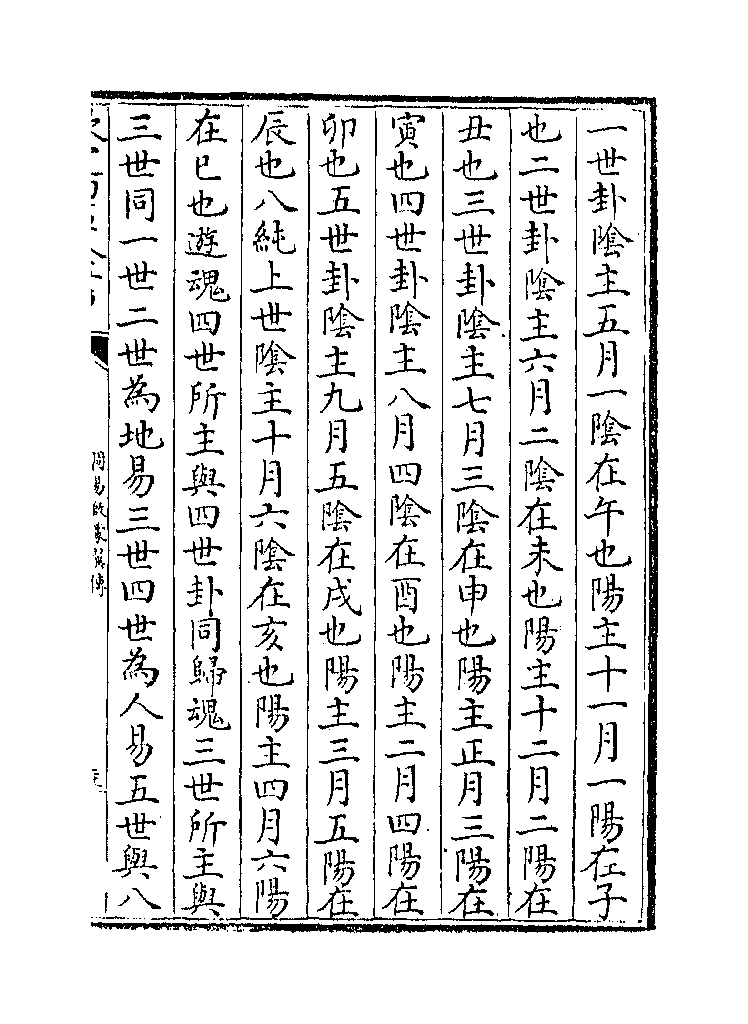 一世卦陰主五月一陰在午也陽主十一月一陽在子
也二世卦陰主六月二陰在未也陽主十二月二陽在
丑也三世卦陰主七月三陰在申也陽主正月三陽在
寅也四世卦陰主八月四陰在酉也陽主二月四陽在
卯也五世卦陰主九月五陰在戌也陽主三月五陽在
辰也八純上世陰主十月六陰在亥也陽主四月六陽
在巳也遊魂四世所主與四世卦同歸魂三世所主與
三世同一世二世為地易三世四世為人易五世與八
周易啟蒙翼傳